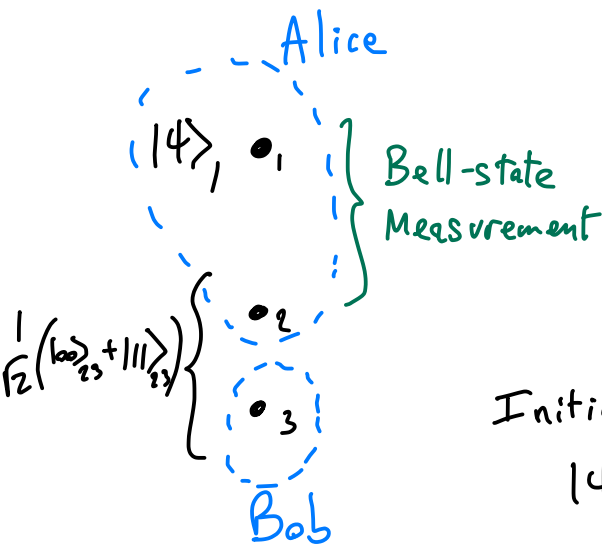 Alice
|ψ⟩₁ •₁
Bell-state
Measurement
•₂
1/√2 (|00⟩₂₃ + |11⟩₂₃)
•₃
Bob